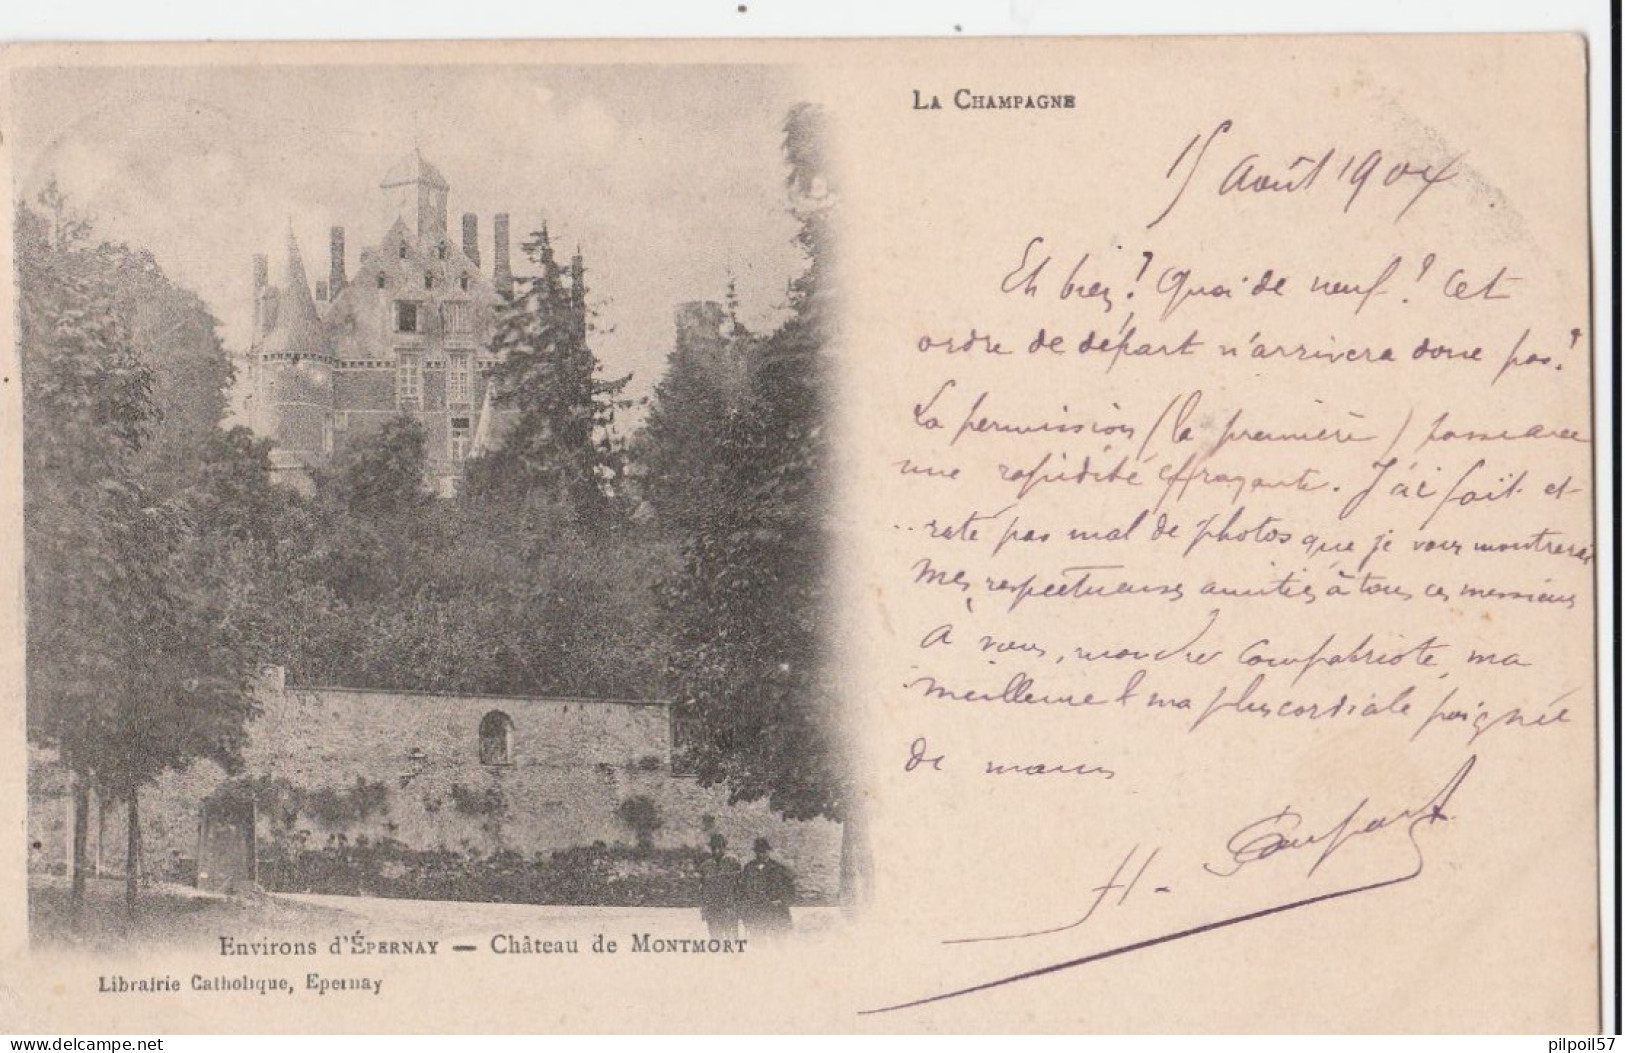 LA CHAMPAGNE
15 Août 1904
Eh bien! Quoi de neuf? Cet
ordre de départ n'arrivera donc pas?
La permission (la première) passe avec
une rapidité effrayante. J'ai fait et
.. raté pas mal de photos que je vous montrerai
Mes respectueuses amitiés à tous ces messieurs
à vous, mon cher compatriote, ma
meilleure & ma plus cordiale poignée
de mains
H.
Environs d'ÉPERNAY — Château de MONTMORT
Librairie Catholique, Epernay
delcampe.net
pilpoil57